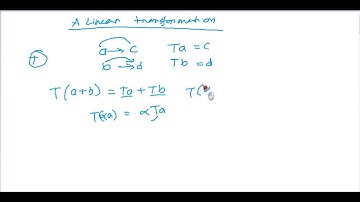 A Linear transformation
a → c    Ta = c
T    b → d    Tb = d
T(a+b) = Ta + Tb    T(
T(αa) = αTa